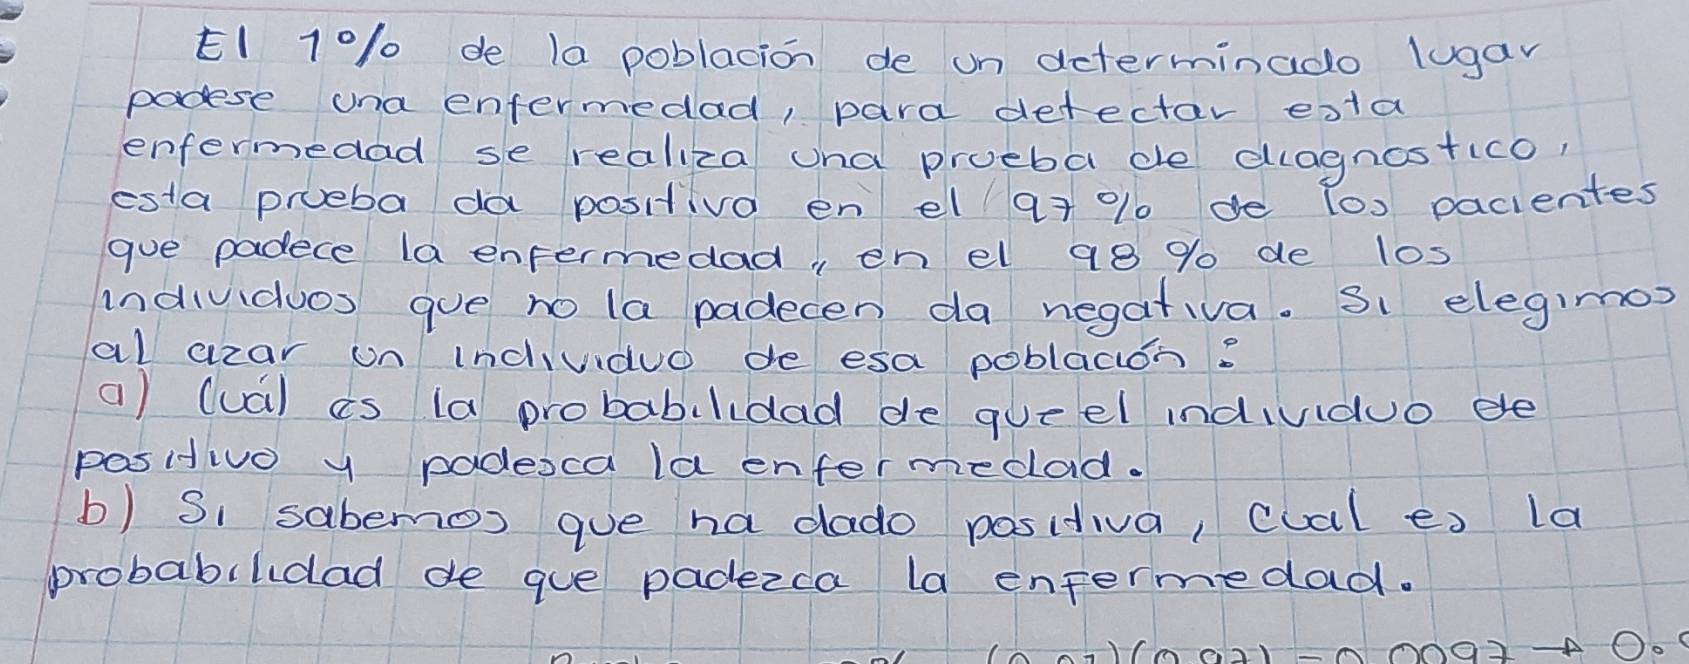 El 1% de la población de un determinado lugar
padese una enfermedad, para detectar esta
enfermedad se realiza una prueba de diagnostico,
esta prueba da positiva en el 97% de los pacientes
que padece la enfermedad, en el 98% de los
individuos que no la padecen da negativa. Si elegimos
al azar un individuo de esa población:
a) Cuál es la probabilidad de que el individuo de
positivo y padesca la enfermedad.
b) Si sabemos que ha dado positiva, cual es la
probabilidad de que padezca la enfermedad.